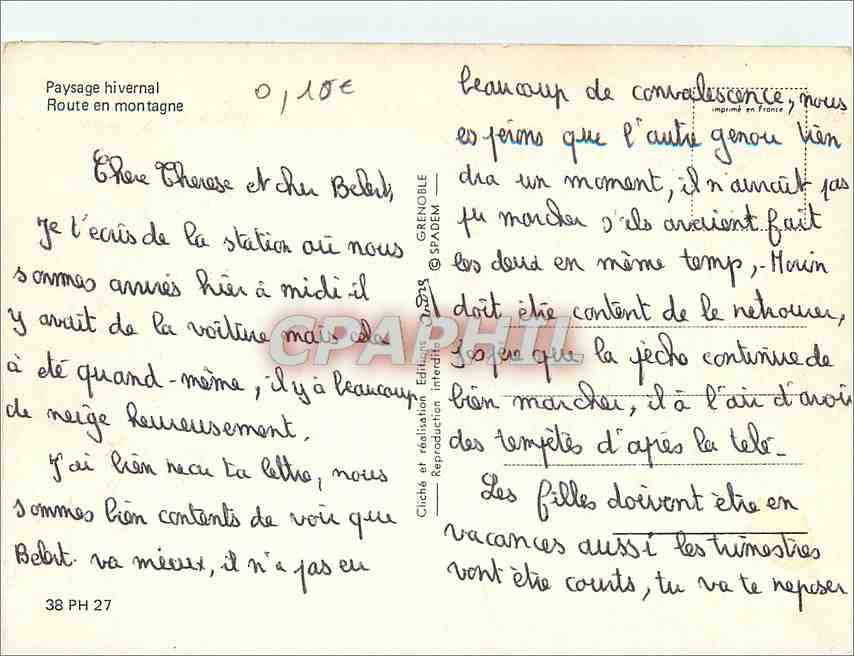 Paysage hivernal
Route en montagne
0,10€
Chere Therese et cher Bebert,
Je t'écris de la station où nous
sommes arrivés hier à midi il
y avait de la voiture mais
à été quand-même, il y à beaucoup
de neige heureusement.
J'ai bien recu ta lettre, nous
sommes bien contents de voir que
Bebert va mieux, il n'a pas eu
38 PH 27
Cliché et réalisation Editions André GRENOBLE
Reproduction interdite © SPADEM
imprimé en France
beaucoup de convalescence, nous
esperons que l'autre genou bien
dra un moment, il n'aurait pas
pu marcher s'ils avaient fait
les deux en même temp,-
doit être content de le retrouver,
J'espère que la pèche continue de
bien marcher, il à l'air d'avoir
des tempêtes d'après la télé-
Les filles doivent être en
vacances aussi les trimestres
vont être courts, tu va te reposer
CPAPHIL